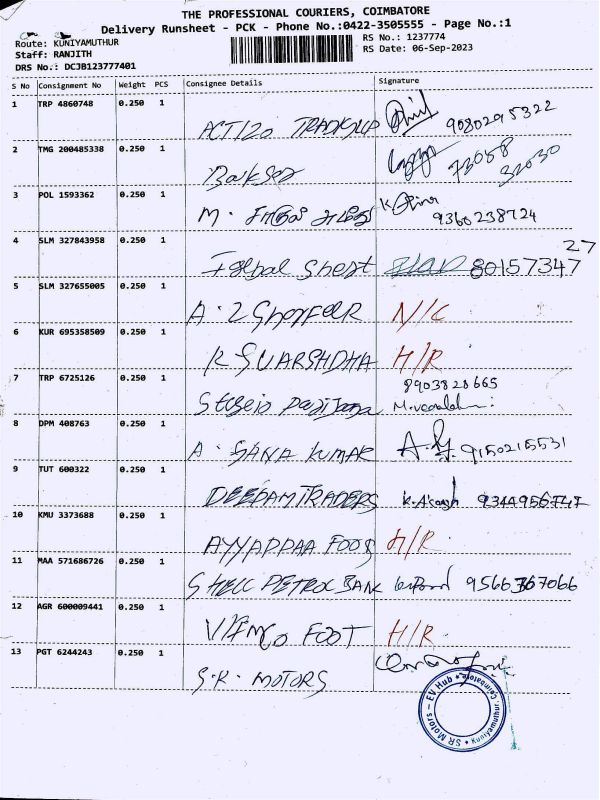 THE PROFESSIONAL COURIERS, COIMBATORE
Delivery Runsheet - PCK - Phone No.:0422-3505555 - Page No.:1
Route: KUNIYAMUTHUR
RS No.: 1237774
Staff: RANJITH
RS Date: 06-Sep-2023
DRS No.: DCJB123777401
S No Consignment No Weight PCS Consignee Details Signature
1 TRP 4860748 0.250 1
9080295322
2 TMG 200485338 0.250 1
73058
32030
3 POL 1593362 0.250 1
M. 9360238724
4 SLM 327843958 0.250 1
27
80157347
5 SLM 327655005 0.250 1
A. 2 N/C
6 KUR 695358509 0.250 1
H/R
7 TRP 6725126 0.250 1
8903828665
8 DPM 408763 0.250 1
A. SANA KUMAR 9150215531
9 TUT 600322 0.250 1
DEEPAM TRADERS
10 KMU 3373688 0.250 1
AYYAPPAA FOOD H/R.
11 MAA 571686726 0.250 1
SHELL PETROL BANK 9566367066
12 AGR 600009441 0.250 1
FOOT H/R.
13 PGT 6244243 0.250 1
S.R. MOTORS
SR Motors - EV Hub
Kuniyamuthur, Coimbatore